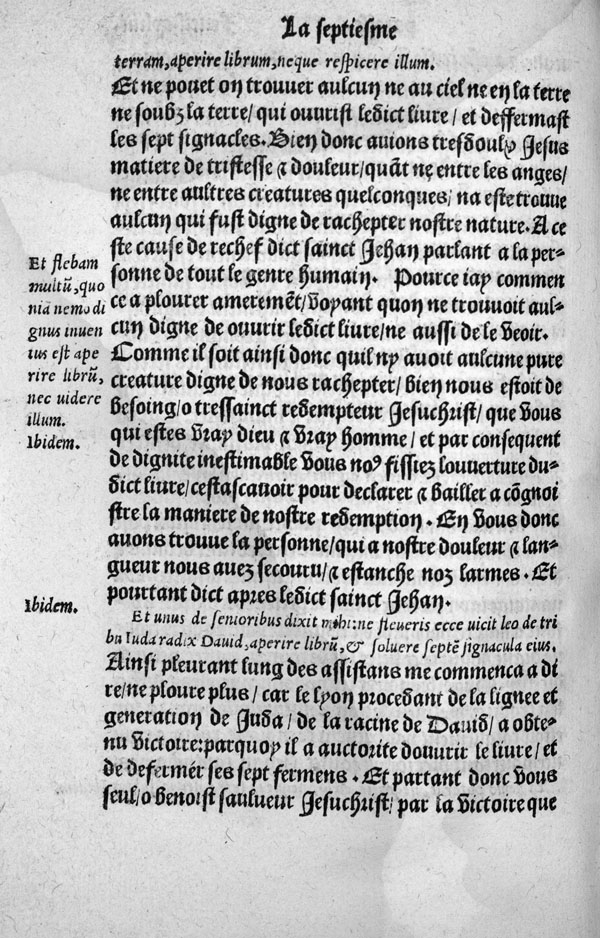 La septiesme
terram, aperire librum, neque respicere illum.
Et ne pouet on trouver aulcun ne au ciel ne en la terre
ne soubz la terre/ qui ouvrist ledict livre/ et deffermast
les sept signacles. Bien donc avions tresdoulx Jesus
matiere de tristesse & douleur/ quāt ne entre les anges/
ne entre aultres creatures quelconques/ na este trouve
aulcun qui fust digne de rachepter nostre nature. A ce
ste cause de rechef dict sainct Jehan parlant a la per-
sonne de tout le genre humain. Pource iay commen
ce a plourer ameremēt/ voyant quon ne trouvoit aul-
cun digne de ouvrir ledict livre/ ne aussi de le veoir.
Comme il soit ainsi donc quil ny avoit aulcune pure
creature digne de nous rachepter/ bien nous estoit de
besoing/ o tressainct redempteur Jesuchrist/ que vous
qui estes vray dieu & vray homme/ et par consequent
de dignite inestimable vous noꝰ fissiez louverture du-
dict livre/ cestascavoir pour declarer & bailler a cōgnoi
stre la maniere de nostre redemption. En vous donc
avons trouve la personne/ qui a nostre douleur & lan-
gueur nous avez secouru/ & estanche noz larmes. Et
pourtant dict apres ledict sainct Jehan.
Et unus de senioribus dixit mihi: ne fleveris ecce vicit leo de tri
bu Iuda radix David, aperire librū, & solvere septē signacula eius.
Ainsi pleurant lung des assistans me commenca a di
re/ ne ploure plus/ car le lyon procedant de la lignee et
generation de Juda/ de la racine de David/ a obte-
nu victoire: parquoy il a auctorite douvrir le livre/ et
de defermer ses sept fermens. Et partant donc vous
seul/ o benoist saulueur Jesuchrist/ par la victoire que
Et flebam
multū, quo
nia nemo di
gnus inuen
tus est ape
rire librū,
nec uidere
illum.
Ibidem.
Ibidem.